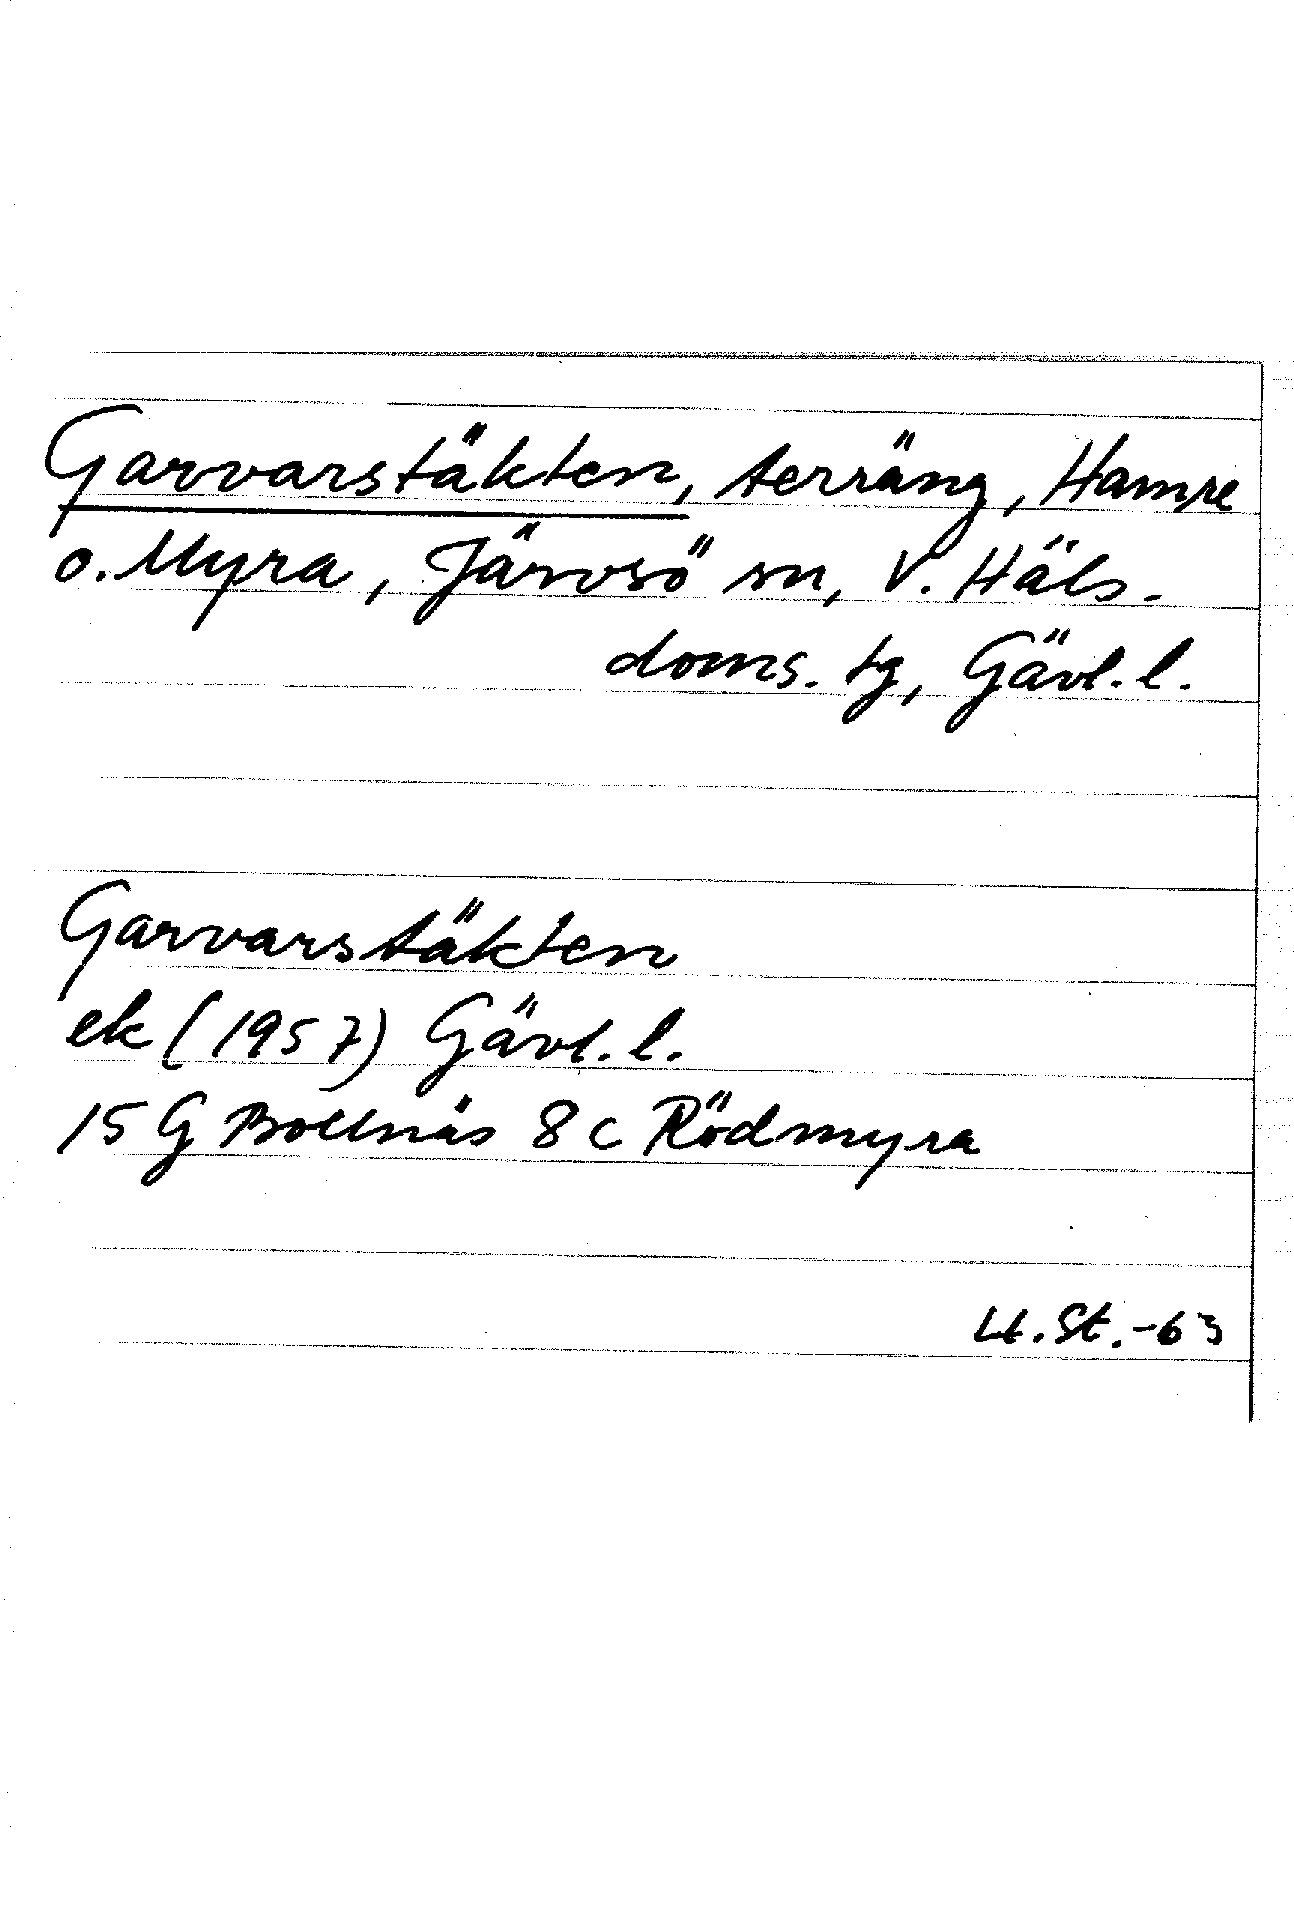 Garvarstäkten, terräng, Hamre
o. Myra, Järvsö sn, V. Häls.
doms. tg, Gävl. l.
Garvarstäkten
ek (1957) Gävl. l.
15 G Bollnäs 8 c Rödmyra
Lt. St. -63